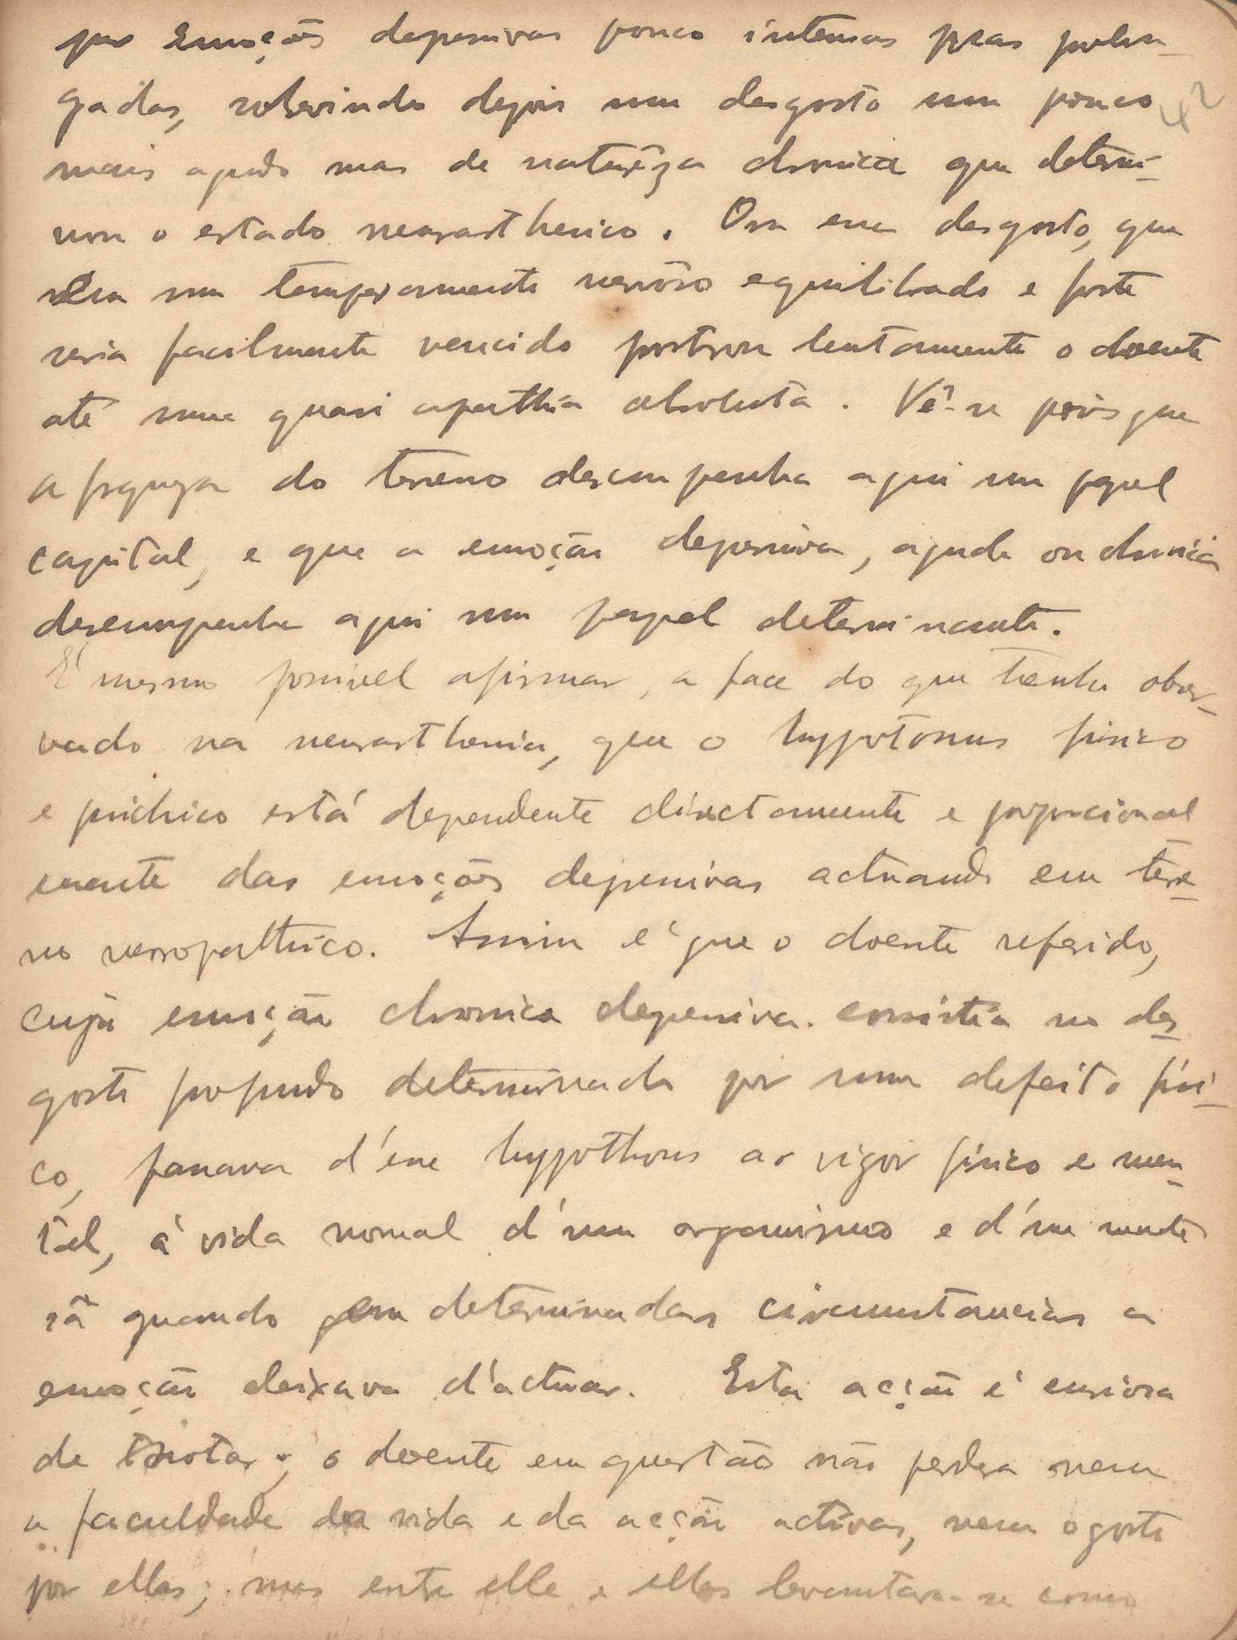 por emoções depressivas pouco intensas mas prolon-
gadas, sobrevindo depois um desgosto um pouco
42
mais agudo mas de natureza chronica que determi-
nou o estado neurasthenico. Ora esse desgosto, que
n'um temperamento nervoso equilibrado e forte
seria facilmente vencido prostrou lentamente o doente
até uma quasi apathia absoluta. Vê-se pois que
a fraqueza do terreno desempenha aqui um papel
capital, e que a emoção depressiva, aguda ou chronica
desempenha aqui um papel determinante.
É mesmo possivel afirmar, a face do que tenho obser-
vado na neurasthenia, que o hypotonus fisico
e psichico está dependente directamente e proporcional
mente das emoções depressivas actuando em terre-
no nevropathico. Assim é que o doente referido,
cuja emoção chronica depressiva consistia no des-
gosto profundo determinado por um defeito fisi-
co, passava d'esse hypothonus ao vigor fisico e men-
tal, á vida normal d'um organismo e d'uma mente
sã quando em determinadas circumstancias a
emoção deixava d'actuar. Esta acção é curiosa
de notar; o doente em questão não perdera nem
a faculdade da vida e da acção activas, nem o gosto
por ellas; mas entre elle e ellas levantava-se como